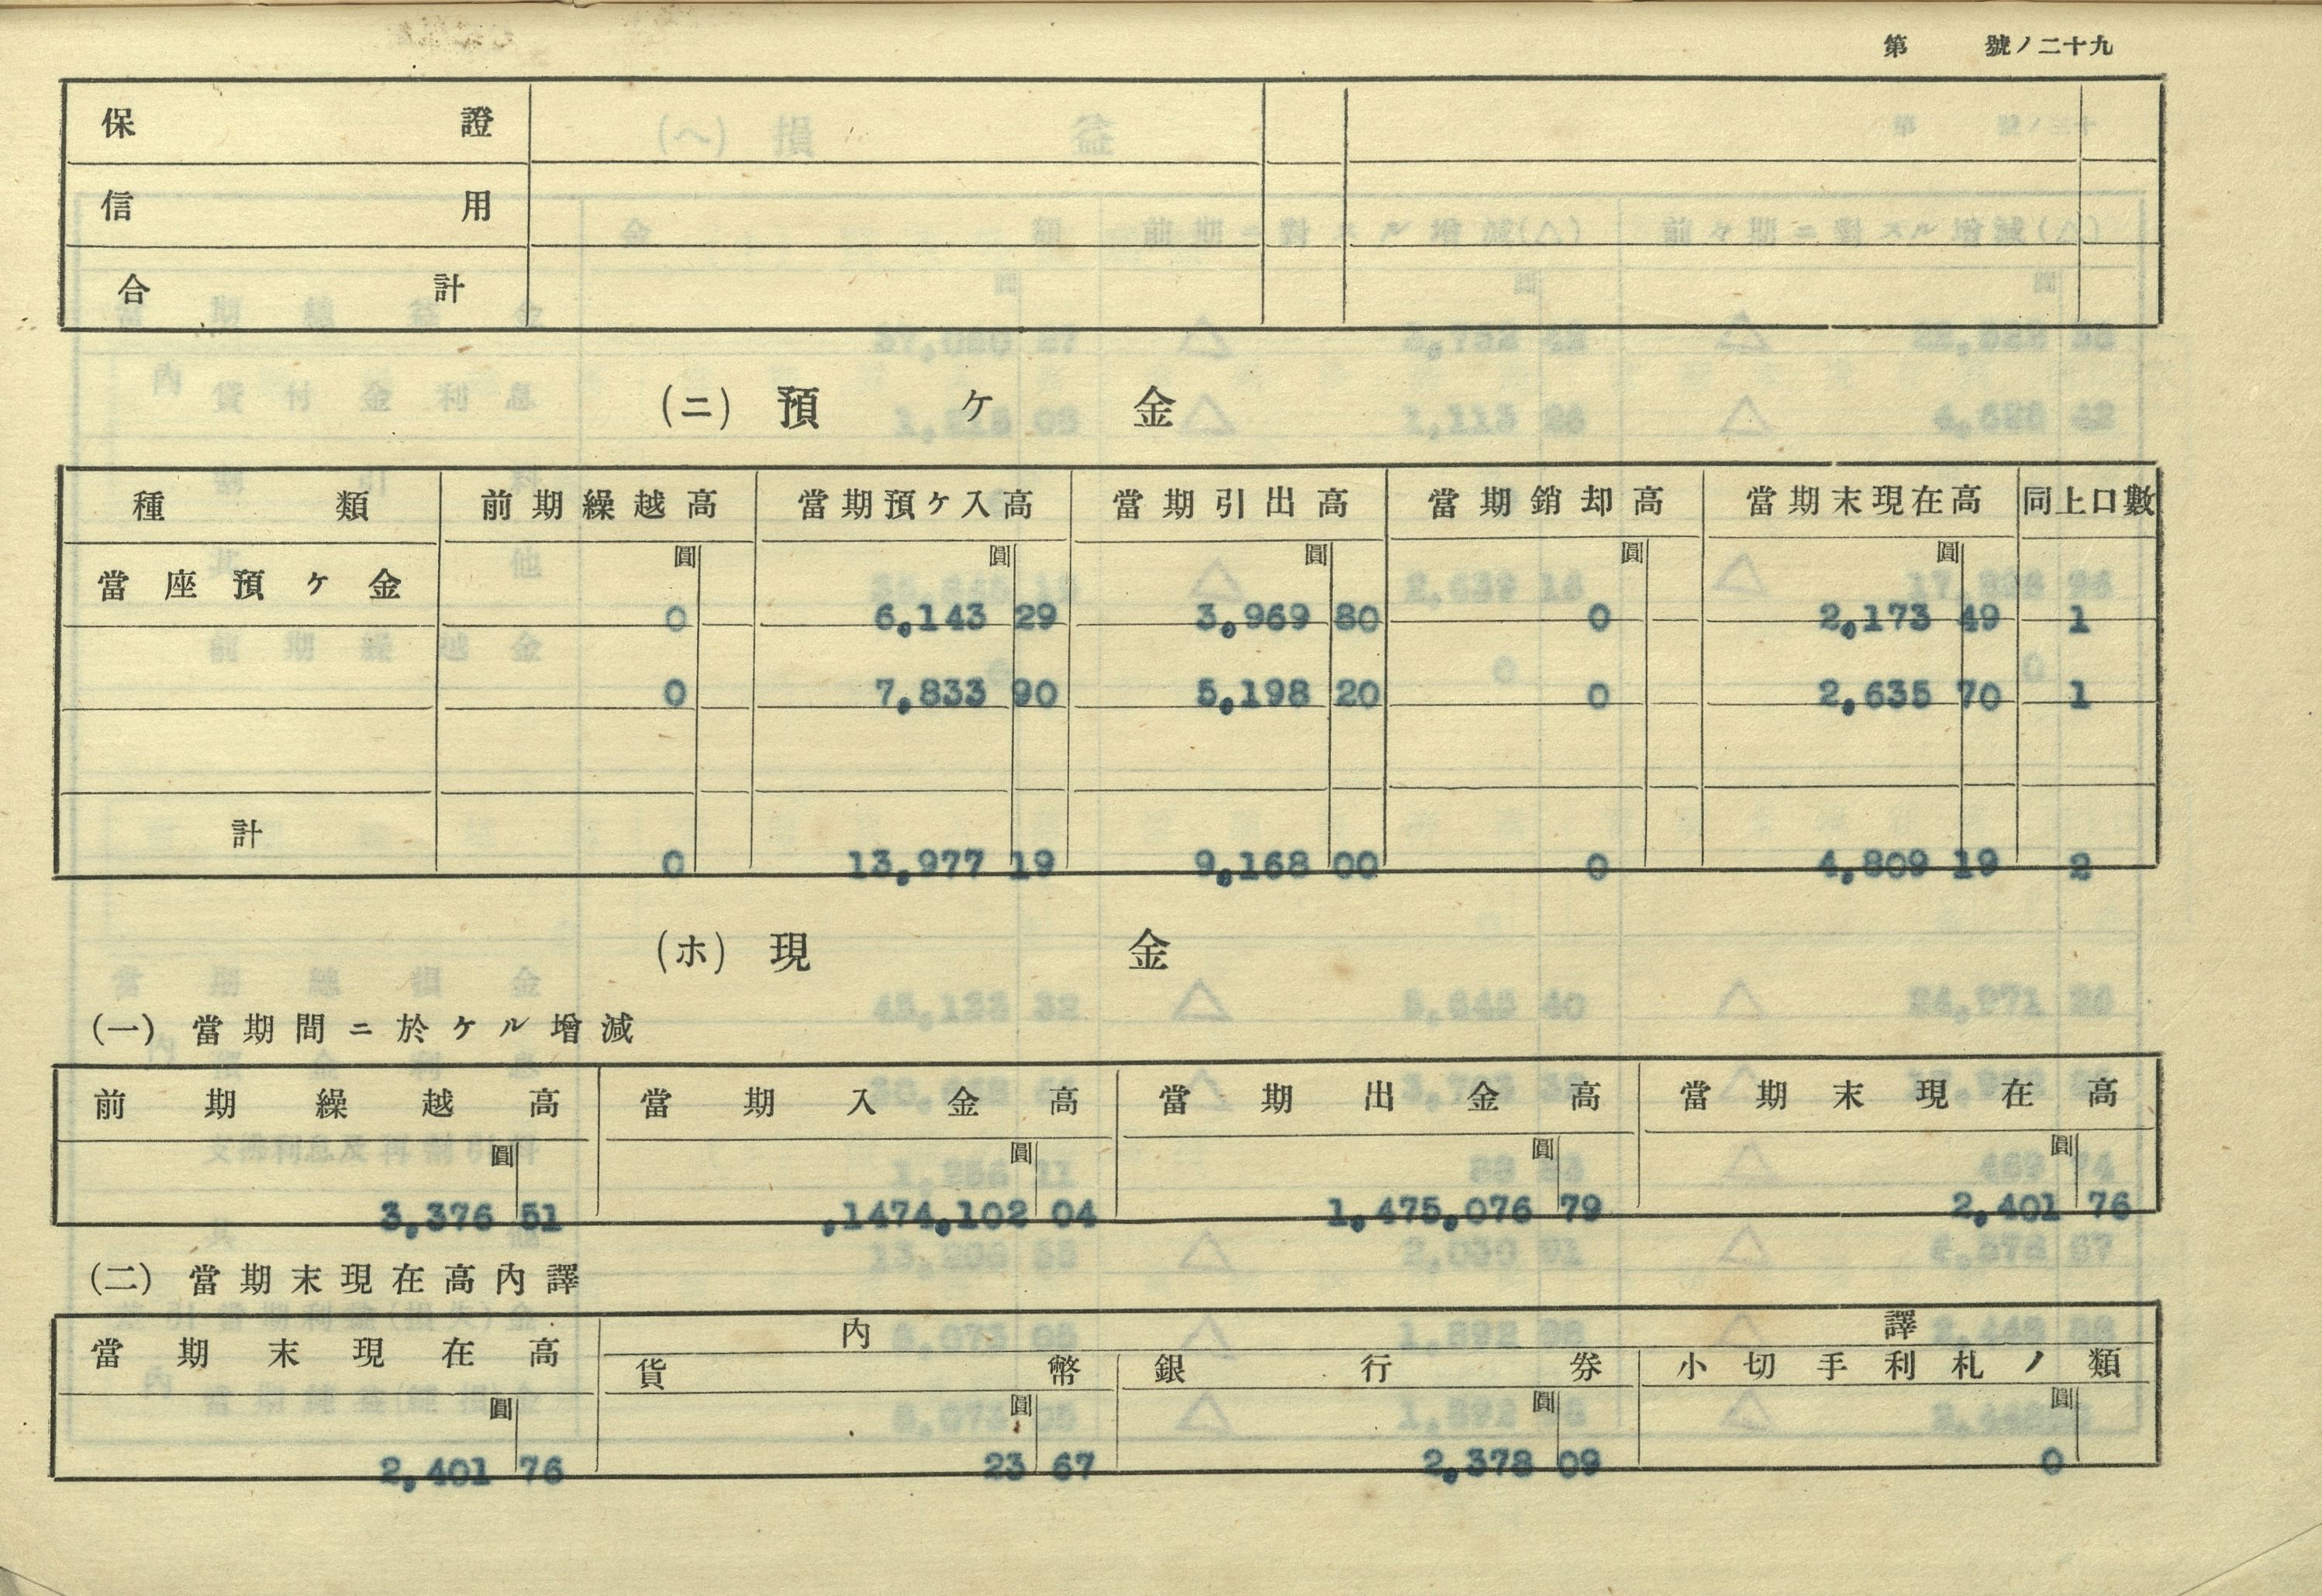 第 號ノ二十九
保證
信用
合計
(ニ) 預ケ金
種類 前期繰越高 當期預ケ入高 當期引出高 當期銷却高 當期末現在高 同上口數
圓 圓 圓 圓 圓
當座預ケ金 0 6,143 29 3,969 80 0 2,173 49 1
0 7,833 90 5,198 20 0 2,635 70 1
計 0 13,977 19 9,168 00 0 4,809 19 2
(ホ) 現金
(一) 當期間ニ於ケル增減
前期繰越高 當期入金高 當期出金高 當期末現在高
圓 圓 圓 圓
3,376 51 ,1474,102 04 1,475,076 79 2,401 76
(二) 當期末現在高內譯
當期末現在高 內譯
貨幣 銀行券 小切手利札ノ類
圓 圓 圓 圓
2,401 76 23 67 2,378 09 0